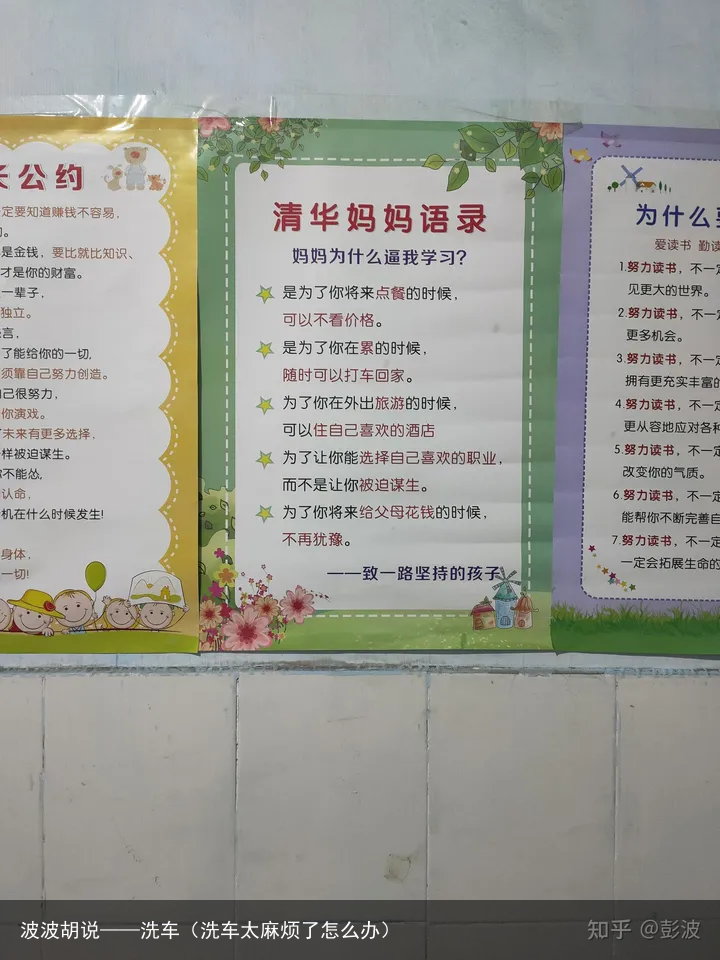 长公约
定要知道赚钱不容易，
是金钱，要比就比知识、
才是你的财富。
一辈子，
独立。
言，
了能给你的一切，
须靠自己努力创造。
己很努力，
你演戏。
未来有更多选择，
样被迫谋生。
不能怂，
认命，
机在什么时候发生!
身体，
一切!
清华妈妈语录
妈妈为什么逼我学习?
是为了你将来点餐的时候，
可以不看价格。
是为了你在累的时候，
随时可以打车回家。
为了你在外出旅游的时候，
可以住自己喜欢的酒店
为了让你能选择自己喜欢的职业，
而不是让你被迫谋生。
为了你将来给父母花钱的时候，
不再犹豫。
——致一路坚持的孩子
为什么要
爱读书 勤读
1.努力读书，不一定
见更大的世界。
2.努力读书，不一定
更多机会。
3.努力读书，不一定
拥有更充实丰富的
4.努力读书，不一定
更从容地应对各种
5.努力读书，不一定
改变你的气质。
6.努力读书，不一定
能帮你不断完善自
7.努力读书，不一定
一定会拓展生命的
波波胡说——洗车（洗车太麻烦了怎么办）
知乎 @彭波